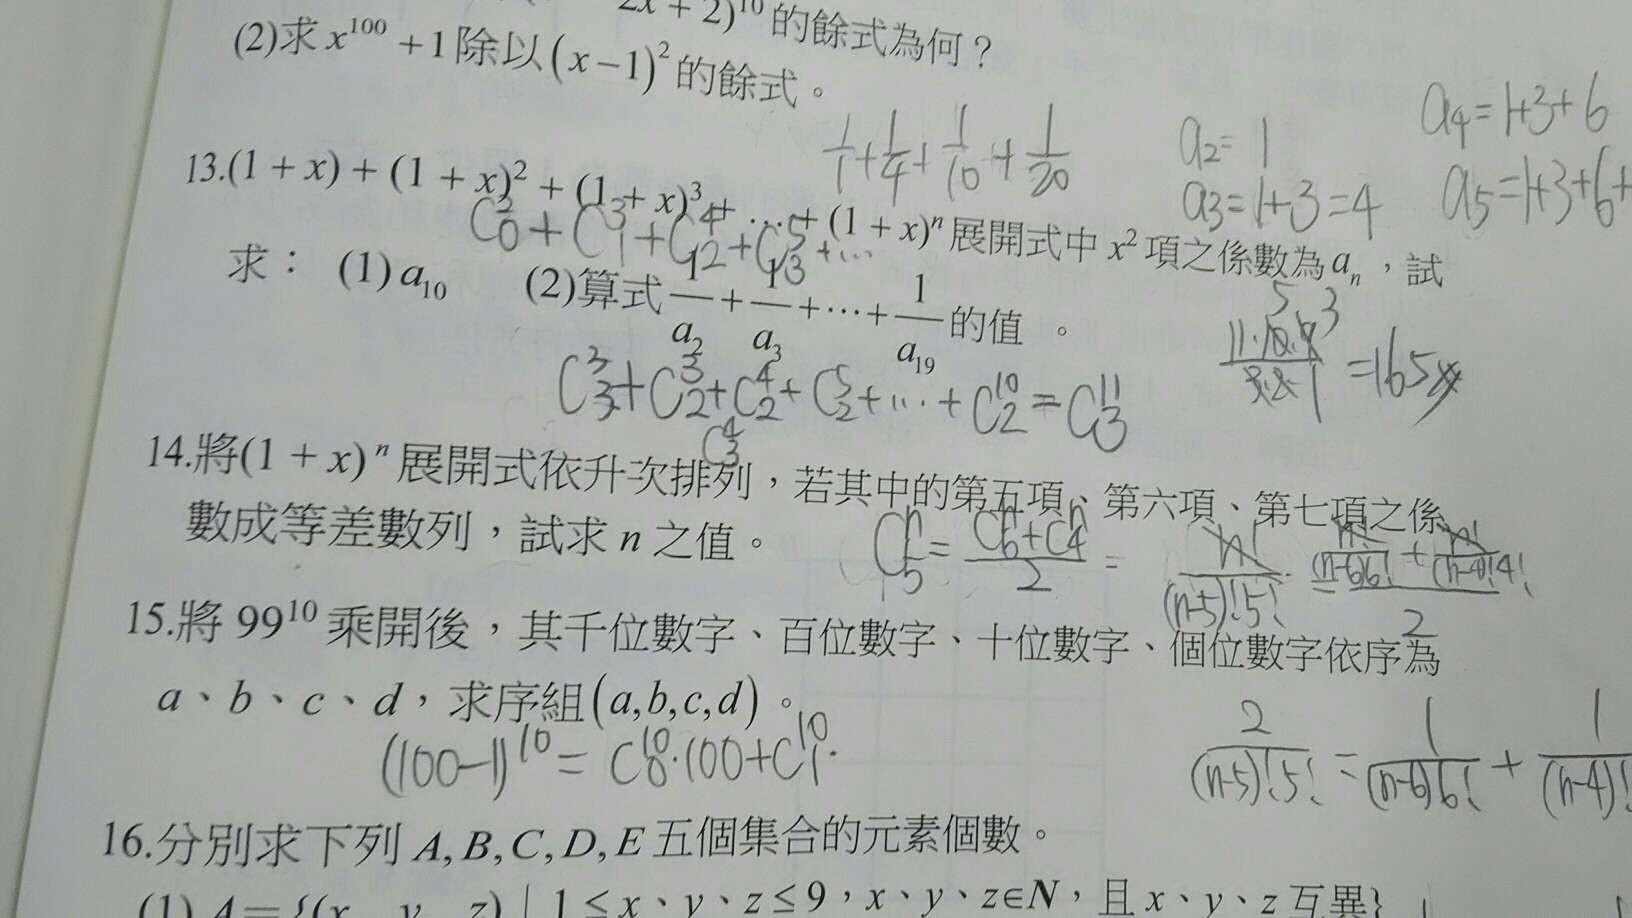 2x + 2)^10 的餘式為何？
(2)求 x^100 + 1 除以 (x − 1)^2 的餘式。
1/1 + 1/4 + 1/10 + 1/20
a2 = 1
a3 = 1+3 = 4
a4 = 1+3+6
a5 = 1+3+6+
13.(1 + x) + (1 + x)^2 + (1 + x)^3 + … + (1 + x)^n 展開式中 x^2 項之係數為 a_n，試
C^2_0 + C^3_1 + C^4_2 + C^5_3 + …
求： (1) a_10 (2)算式 1/a_2 + 1/a_3 + … + 1/a_19 的值。
11·10·9 / 3·2·1 = 165
5 3
C^3_3 + C^3_2 + C^4_2 + C^5_2 + … + C^10_2 = C^11_3
C^4_3
14.將(1 + x)^n 展開式依升次排列，若其中的第五項、第六項、第七項之係
數成等差數列，試求 n 之值。
C^n_5 = (C^n_6 + C^n_4)/2 = n!/(n-5)!5! = (n!/(n-6)!6! + n!/(n-4)!4!)/2
15.將 99^10 乘開後，其千位數字、百位數字、十位數字、個位數字依序為
a、b、c、d，求序組(a,b,c,d)。
(100-1)^10 = C^10_0·100 + C^10_1·
2/(n-5)!5! = 1/(n-6)!6! + 1/(n-4)!
16.分別求下列 A, B, C, D, E 五個集合的元素個數。
(1) A = {(x, y, z) | 1 ≤ x、y、z ≤ 9，x、y、z∈N，且 x、y、z 互異}